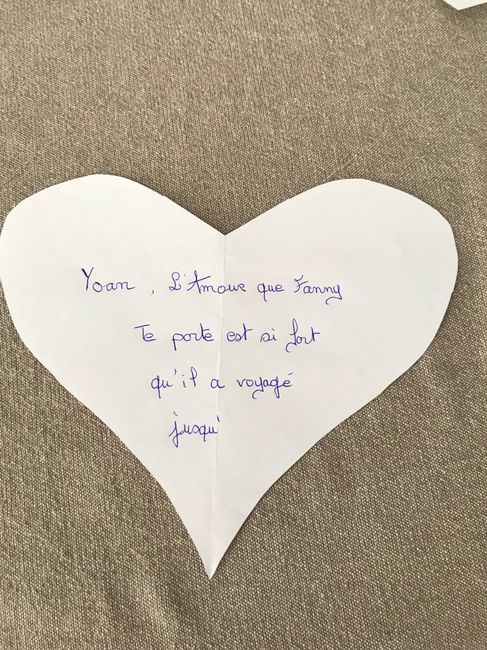 Yoan, L'Amour que Fanny
Te porte est si fort
qu'il a voyagé
jusqu'